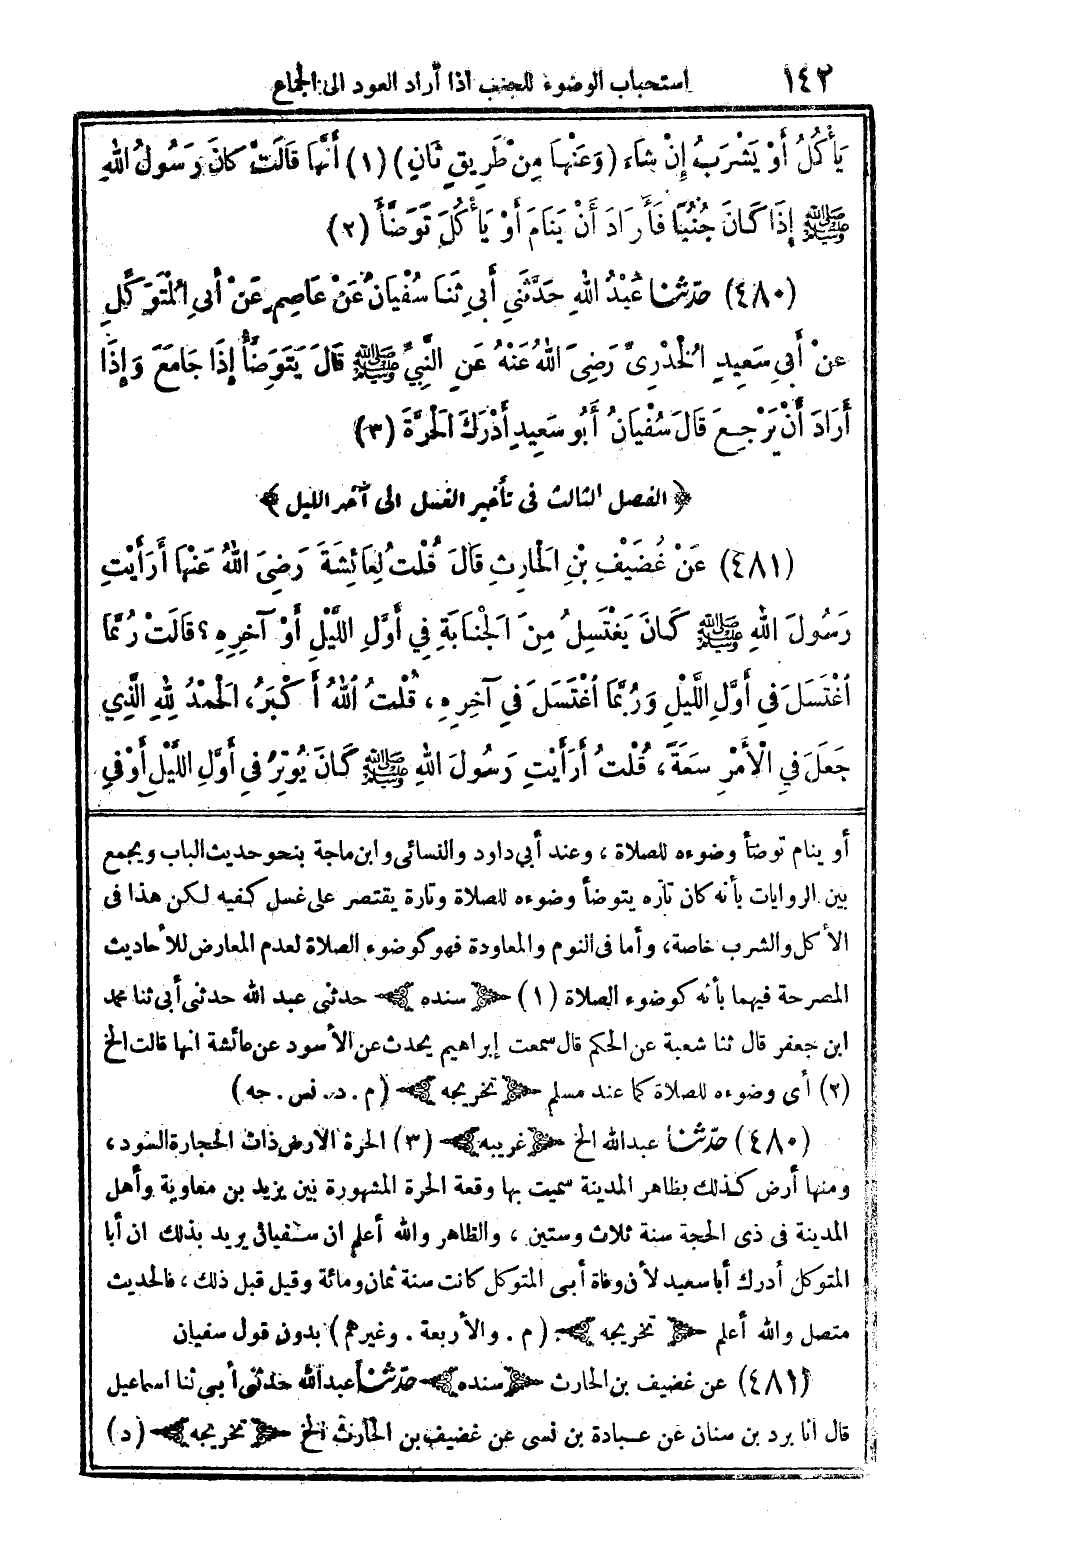 ١٤٢ استحباب الوضوء للجنب اذا أراد العود الى الجماع
يَأْكُلُ أَوْ يَشْرَبُ إِنْ شَاءَ (وَعَنْهَا مِنْ طَرِيقٍ ثَانٍ) (١) أَنَّهَا قَالَتْ كَانَ رَسُولُ اللهِ
ﷺ إِذَا كَانَ جُنُبًا فَأَرَادَ أَنْ يَنَامَ أَوْ يَأْكُلَ تَوَضَّأَ (٢)
(٤٨٠) حَدَّثَنَا عَبْدُ اللهِ حَدَّثَنِي أَبِي ثَنَا سُفْيَانُ عَنْ عَاصِمٍ عَنْ أَبِي الْمُتَوَكِّلِ
عَنْ أَبِي سَعِيدٍ الْخُدْرِيِّ رَضِيَ اللهُ عَنْهُ عَنِ النَّبِيِّ ﷺ قَالَ يَتَوَضَّأُ إِذَا جَامَعَ وَإِذَا
أَرَادَ أَنْ يَرْجِعَ قَالَ سُفْيَانُ أَبُو سَعِيدٍ أَدْرَكَ الْحَرَّةَ (٣)
﴿ الفصل الثالث فى تأخير الغسل الى آخر الليل ﴾
(٤٨١) عَنْ غُضَيْفِ بْنِ الْحَارِثِ قَالَ قُلْتُ لِعَائِشَةَ رَضِيَ اللهُ عَنْهَا أَرَأَيْتِ
رَسُولَ اللهِ ﷺ كَانَ يَغْتَسِلُ مِنَ الْجَنَابَةِ فِي أَوَّلِ اللَّيْلِ أَوْ آخِرِهِ؟ قَالَتْ رُبَّمَا
اغْتَسَلَ فِي أَوَّلِ اللَّيْلِ وَرُبَّمَا اغْتَسَلَ فِي آخِرِهِ، قُلْتُ اللهُ أَكْبَرُ، الْحَمْدُ لِلهِ الَّذِي
جَعَلَ فِي الْأَمْرِ سَعَةً، قُلْتُ أَرَأَيْتِ رَسُولَ اللهِ ﷺ كَانَ يُوتِرُ فِي أَوَّلِ اللَّيْلِ أَوْ فِي
أو ينام توضأ وضوءه للصلاة، وعند أبي داود والنسائى وابن ماجة بنحو حديث الباب ويجمع
بين الروايات بأنه كان تارة يتوضأ وضوءه للصلاة وتارة يقتصر على غسل كفيه لكن هذا فى
الأكل والشرب خاصة، وأما فى النوم والمعاودة فهو كوضوء الصلاة لعدم المعارض للأحاديث
المصرحة فيهما بأنه كوضوء الصلاة (١) ﴿ سنده ﴾ حدثنى عبد الله حدثنى أبى ثنا محمد
ابن جعفر قال ثنا شعبة عن الحكم قال سمعت إبراهيم يحدث عن الأسود عن عائشة انها قالت الخ
(٢) أى وضوءه للصلاة كما عند مسلم ﴿ تخريجه ﴾ (م. د. نس. جه)
(٤٨٠) حدّثنا عبدالله الخ ﴿ غريبه ﴾ (٣) الحرة الارض ذات الحجارة السود،
ومنها أرض كذلك بظاهر المدينة سميت بها وقعة الحرة المشهورة بين يزيد بن معاوية وأهل
المدينة فى ذى الحجة سنة ثلاث وستين، والظاهر والله أعلم ان سفيان يريد بذلك ان أبا
المتوكل أدرك أبا سعيد لأن وفاة أبى المتوكل كانت سنة ثمان ومائة وقيل قبل ذلك، فالحديث
متصل والله أعلم ﴿ تخريجه ﴾ (م. والأربعة. وغيرهم) بدون قول سفيان
(٤٨١) عن غضيف بن الحارث ﴿ سنده ﴾ حدّثنا عبدالله حدثنى أبى ثنا اسماعيل
قال أنا برد بن سنان عن عبادة بن نسى عن غضيف بن الحارث الخ ﴿ تخريجه ﴾ (د)